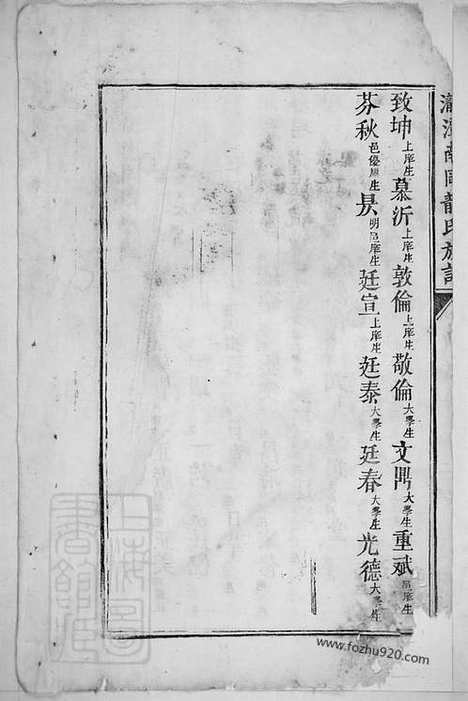 致坤上庠生 慕沂上庠生 敦倫上庠生 敬倫大學生 文鼎大學生 重斌邑庠生
芬秋邑優廩生 昃明邑庠生 廷宣上庠生 廷泰大學生 廷春大學生 光德大學生
南岡龍氏族譜
上海圖書館藏
www.fozhu920.com